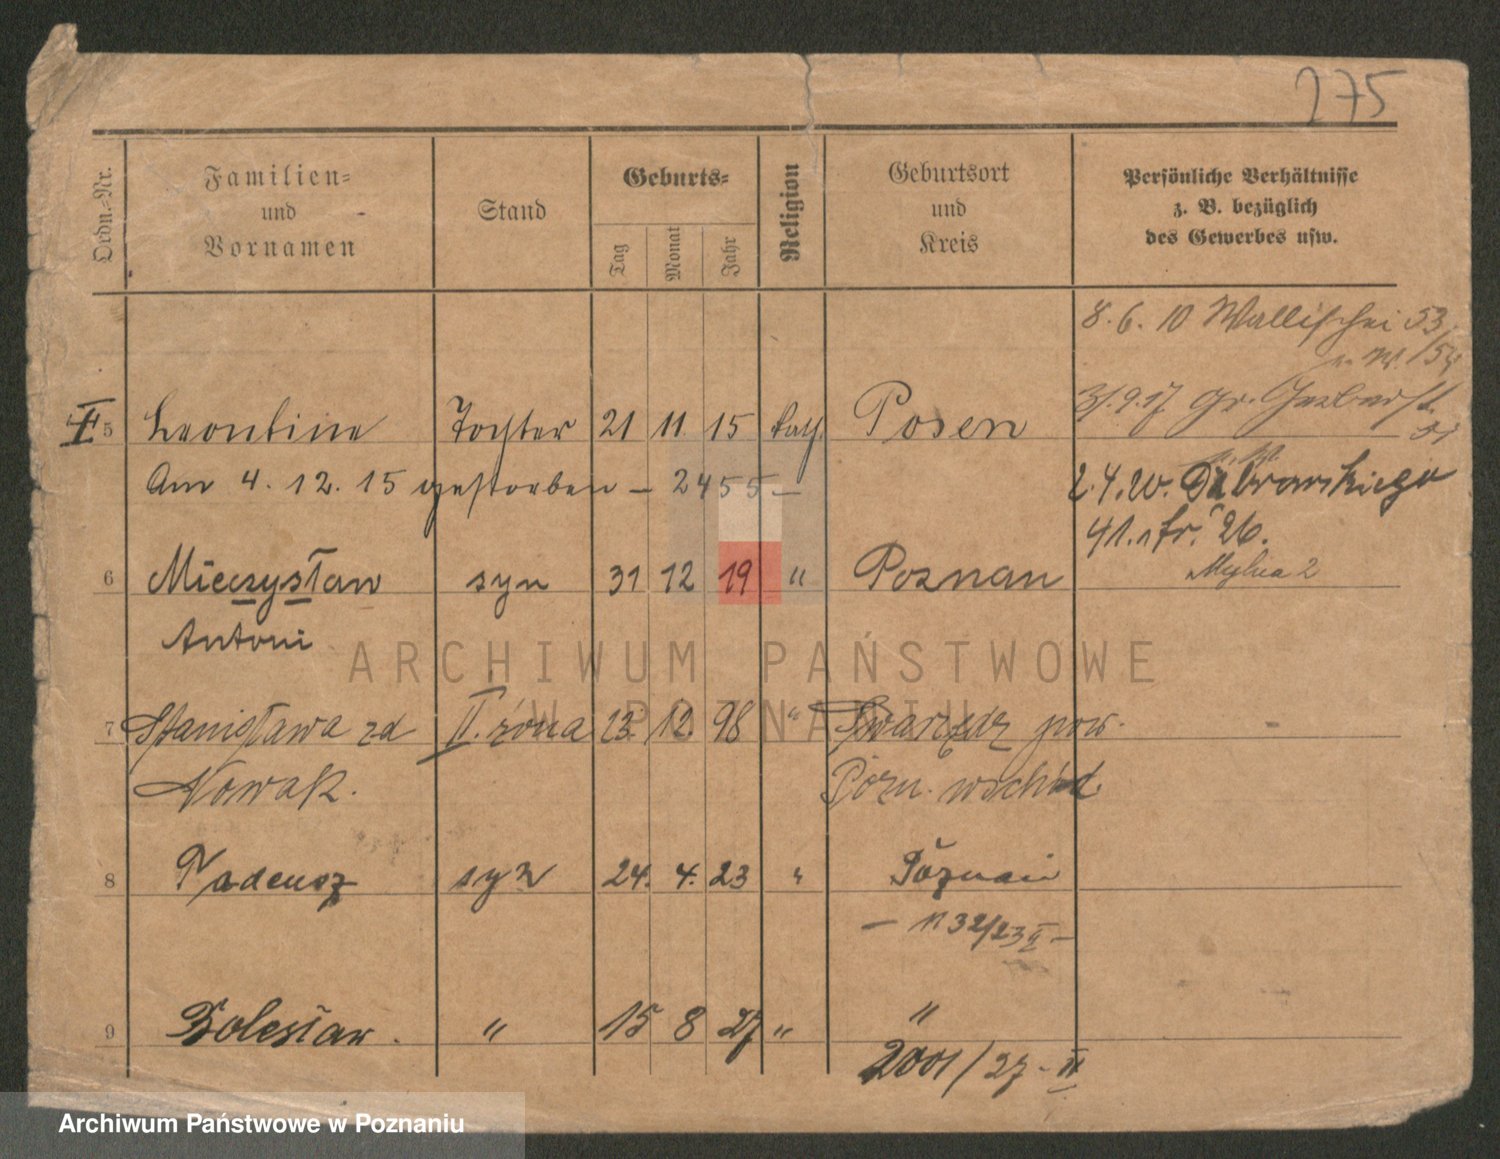 275
Ordn.-Nr.
Familien-
und
Vornamen
Stand
Geburts-
Tag
Monat
Jahr
Religion
Geburtsort
und
Kreis
Persönliche Verhältnisse
z. B. bezüglich
des Gewerbes usw.
8. 6. 10 Wallischei 53
31.9.17 Gr. Gerberst.
5 Leontine Tochter 21 11 15 kath. Posen
Am 4. 12. 15 gestorben – 2455 –
2.4.20. Dąbrowskiego
41. 26.
6 Mieczysław syn 31 12 19 " Poznan
Mylna 2
Antoni
ARCHIWUM PAŃSTWOWE
W POZNANIU
7 Stanisława zd II. żona 23. 12. 98 " Swarzędz pow.
Nowak. Pozn. wschód.
8 Tadeusz syn 24. 4. 23 " Poznań
– 1132/23 II –
9 Bolesław. " 15 8 27 " "
2001/27 - II
Archiwum Państwowe w Poznaniu